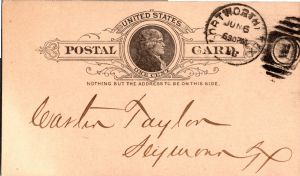 UNITED STATES
POSTAL CARD
ONE CENT
NOTHING BUT THE ADDRESS TO BE ON THIS SIDE.
FORT WORTH
JUN 6
630PM
Taylor
Seymour Tx